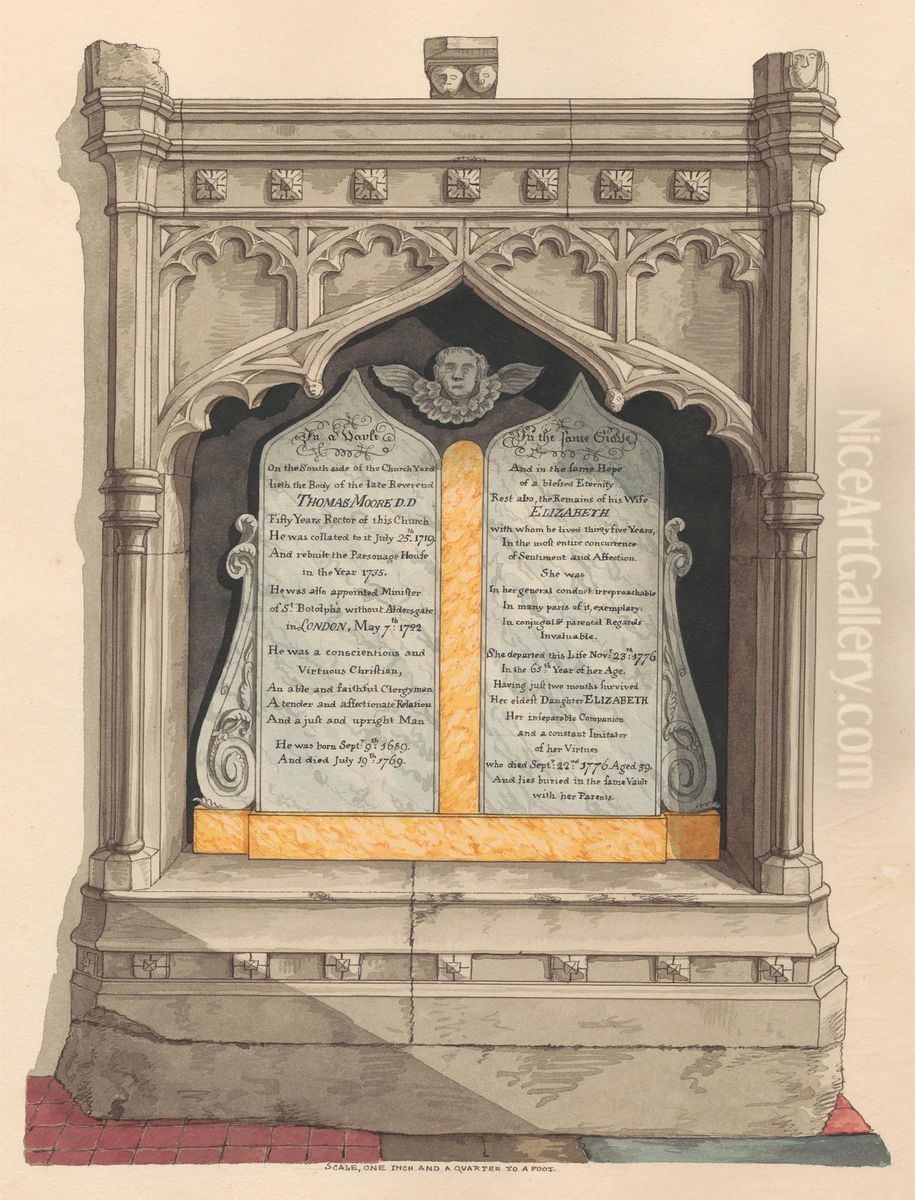 In a Vault
On the South side of the Church Yard
lieth the Body of the late Reverend
THOMAS MOORE D.D
Fifty Years Rector of this Church
He was collated to it July 25.th 1719.
And rebuilt the Parsonage House
in the Year 1735.
He was also appointed Minister
of St. Botolphs without Aldersgate
in LONDON, May 7.th 1722
He was a conscientious and
Virtuous Christian,
An able and faithful Clergyman
A tender and affectionate Relation
And a just and upright Man
He was born Sept.r 9.th 1689.
And died July 19.th 1769.
In the same Grave
And in the same Hope
of a blessed Eternity
Rest also, the Remains of his Wife
ELIZABETH
with whom he lived thirty five Years,
In the most entire concurrence
of Sentiment and Affection.
She was
In her general conduct irreproachable
In many parts of it, exemplary:
In conjugal & parental Regards
Invaluable.
She departed this Life Nov.r 23.rd 1776
In the 65th Year of her Age.
Having just two months survived
Her eldest Daughter ELIZABETH
Her inseparable Companion
and a constant Imitator
of her Virtues
who died Sept.r 22.nd 1776. Aged 39.
And lies buried in the same Vault
with her Parents.
SCALE, ONE INCH AND A QUARTER TO A FOOT.
NiceArtGallery.com